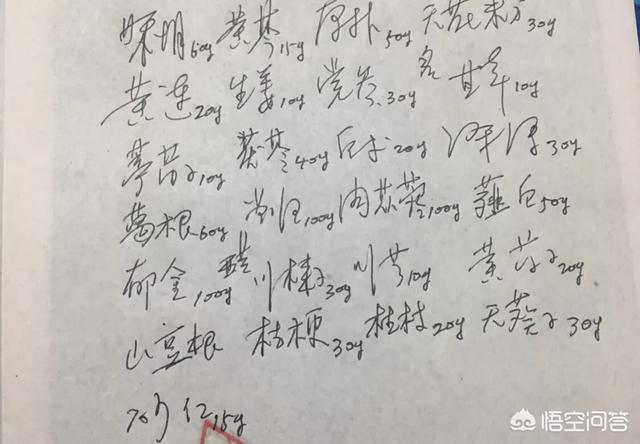 明60g 黄芩15g 厚朴50g 天花粉30g
黄连20g 生姜10g 党参30g 甘草10g
葶苈子10g 茯苓40g 白术20g 泽泻30g
葛根60g 当归100g 肉苁蓉100g 薤白50g
郁金100g 醋川楝子30g 川芎10g 黄芥子20g
山豆根 桔梗30g 桂枝20g 天葵子30g
砂仁15g
悟空问答